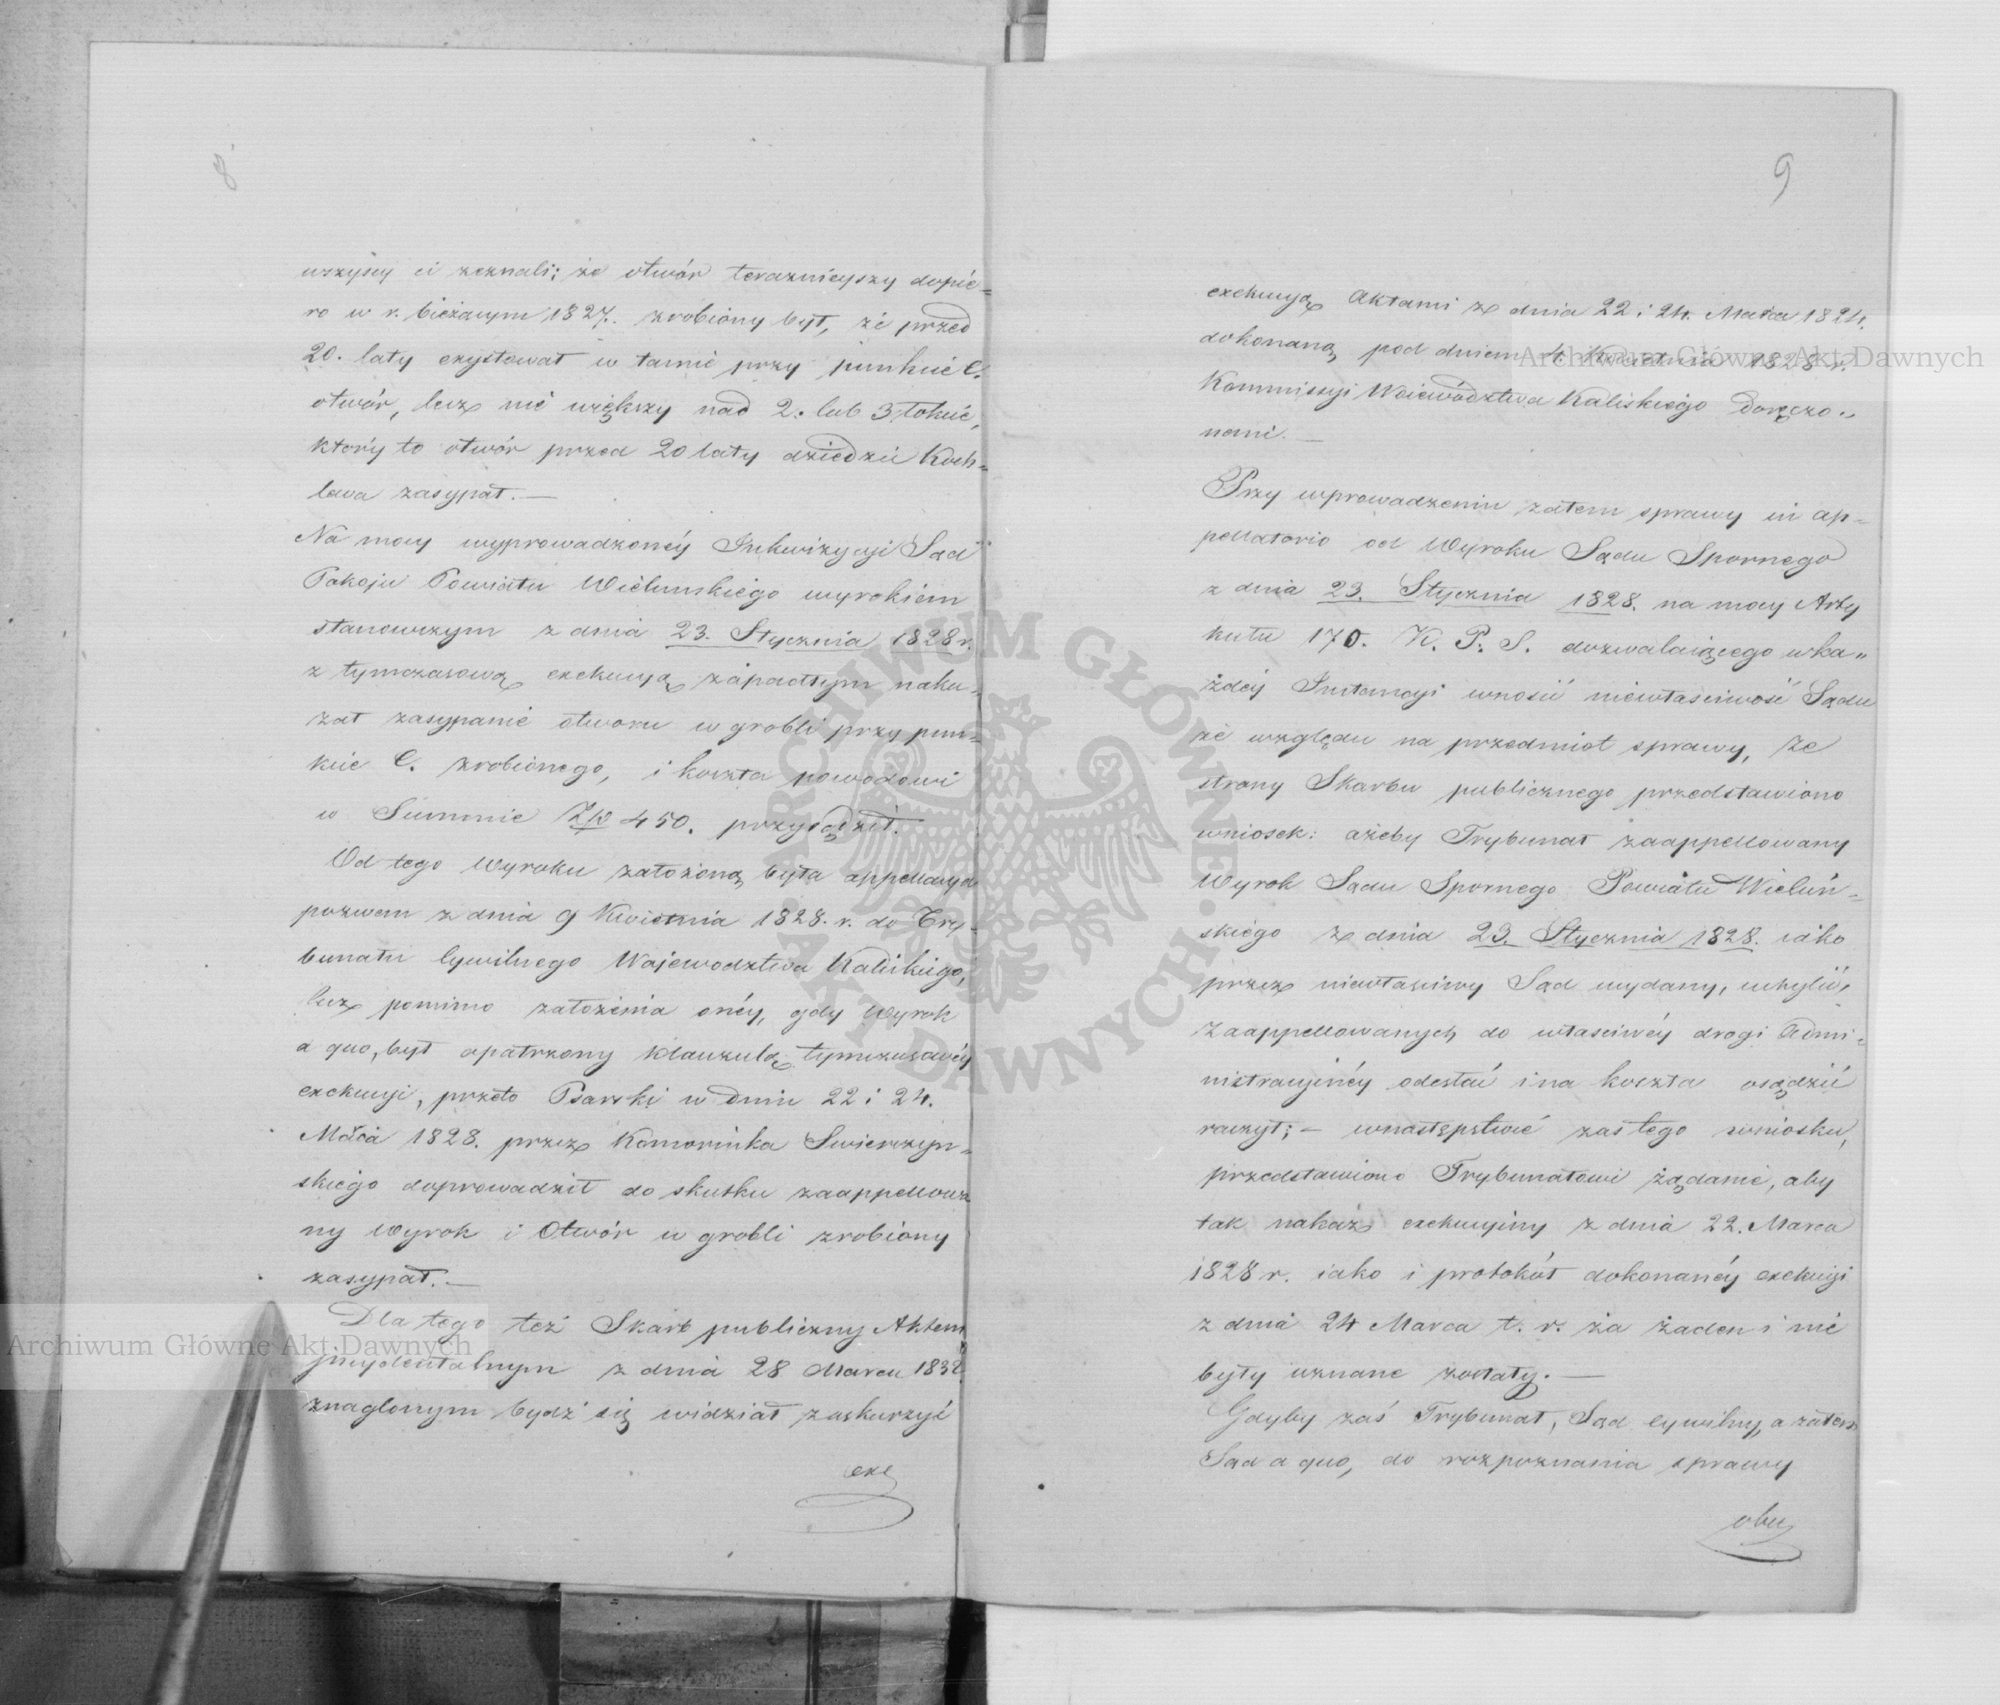 8
wszyscy ci zeznali; że otwór teraznieyszy dopié-
ro w r. bieżącym 1827. zrobiony był, że przed
20. laty exystował w tamie przy punkcie C.
otwór, lecz nie większy nad 2. lub 3 łokcie,
który to otwór przed 20 laty dziedzic Koch-
lewa zasypał. —
Na mocy wyprowadzonéy Inkwizycyi Sąd
Pokoju Powiatu Wieluńskiégo wyrokiem
stanowczym z dnia 23. Stycznia 1828 r.
z tymczasową exekucyą zapadłym naka-
zał zasypanie otworu w grobli przy pun-
kcie C. zrobionego, i koszta powodowi
w Summie Złp 450. przysądził.
Od tego Wyroku założoną była appellacya
pozwem z dnia 9 Kwietnia 1828. r. do Try-
bunału Cywilnego Wojewodztwa Kaliskiégo,
lecz pomimo założenia onéy, gdy Wyrok
a quo, był opatrzony klauzulą tymczasowéy
exekucyi, przeto Psarski w dniu 22 i 24.
Marca 1828. przez Komornika Swierczyn-
skiego doprowadził do skutku zaappellowa
ny Wyrok i Otwór w grobli zrobiony
zasypał. —
Dla tego też Skarb publiczny Aktem
incydentalnym z dnia 28 Marca 1832
znaglonym bydź się widział zaskarzyć
exe
9
exekucyą Aktami z dnia 22 i 24. Marca 1824.
dokonaną pod dniem 4. Kwietnia 1828 r.
Kommissyi Woiewództwa Kaliskiego doręczo-
nemi. —
Przy wprowadzeniu zatem sprawy in ap-
pellatorio od Wyroku Sądu Spornego
z dnia 23. Stycznia 1828. na mocy Arty
kułu 170. K. P. S. dozwalaiącego w ka-
żdéy Instancyi wnosić niewłaściwość Sądu
ze względu na przedmiot sprawy, ze
strony Skarbu publicznego przedstawiono
wniosek: ażeby Trybunał zaappellowany
Wyrok Sądu Spornego Powiatu Wieluń-
skiégo z dnia 23. Stycznia 1828. iako
przez niewłaściwy Sąd wydany, uchylić,
zaappellowanych do właściwéy drogi Admi-
nistracyinéy odesłać i na koszta osądzić
raczył; — wnastępstwie zas tego wniosku,
przedstawiono Trybunałowi żądanie, aby
tak nakaz exekucyiny z dnia 22. Marca
1828 r. iako i protokół dokonanéy exekucyi
z dnia 24 Marca t. r. za żaden i nie
były uznane zostały. —
Gdyby zaś Trybunał, Sąd cywilny, a zatem
Sąd a quo, do rozpoznania sprawy
obe
Archiwum Główne Akt Dawnych
Archiwum Główne Akt Dawnych
ARCHIWUM GŁÓWNE AKT DAWNYCH